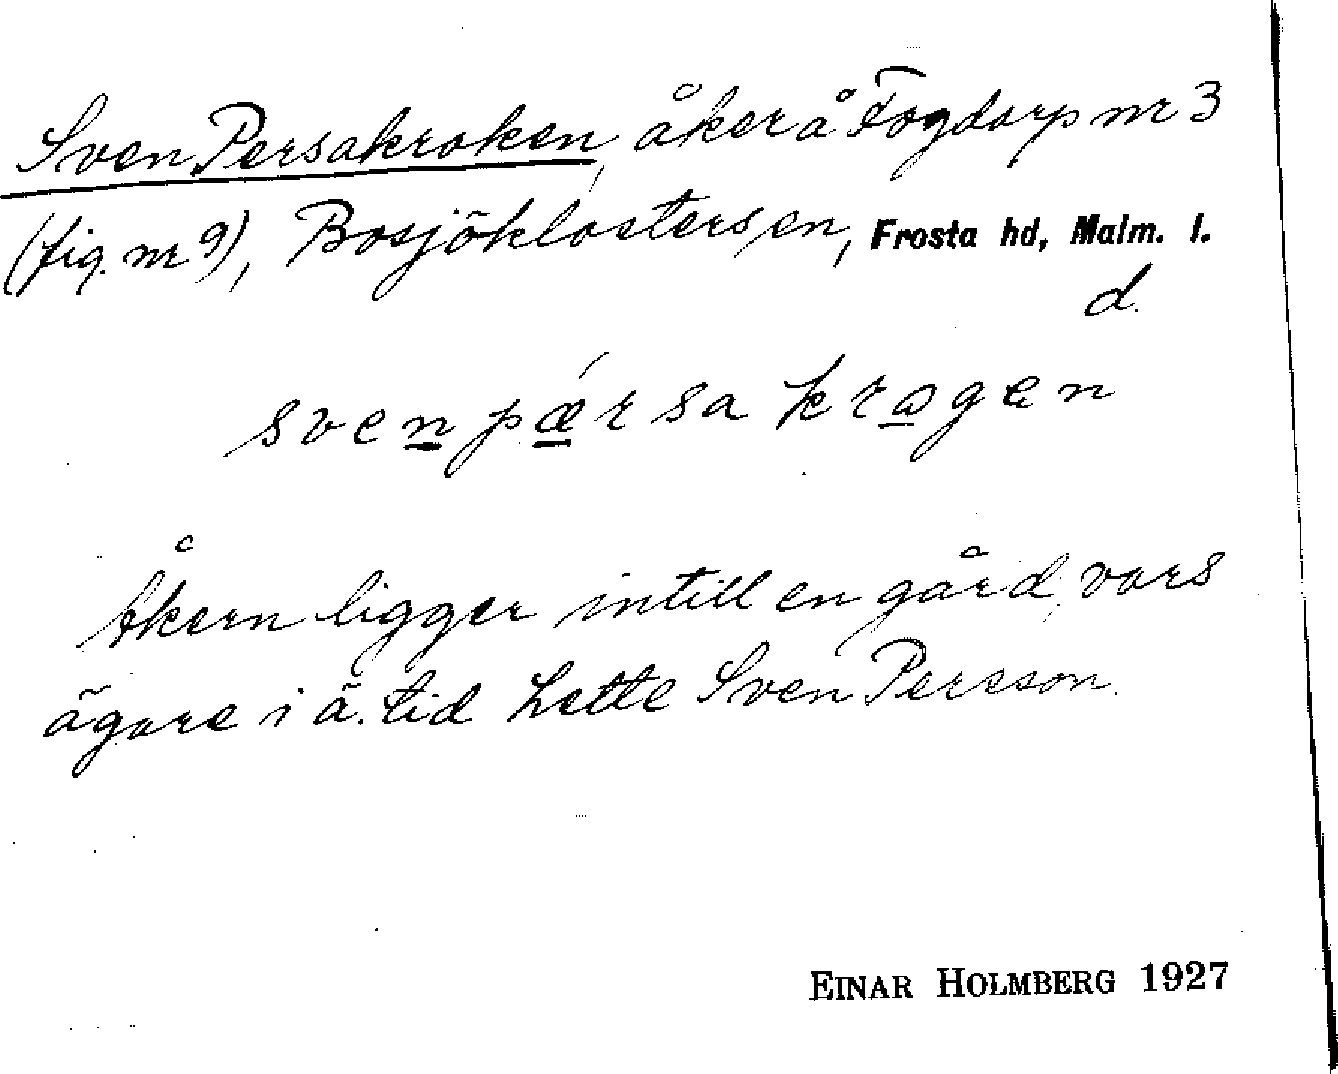 Sven Persakroken, åker å Fogdarp nr 3
(fig. nr 9), Bosjöklosters sn, Frosta hd, Malm. l.
d.
svenpǽrsa krogen
Åkern ligger intill en gård, vars
ägare i ä. tid hette Sven Persson.
EINAR HOLMBERG 1927